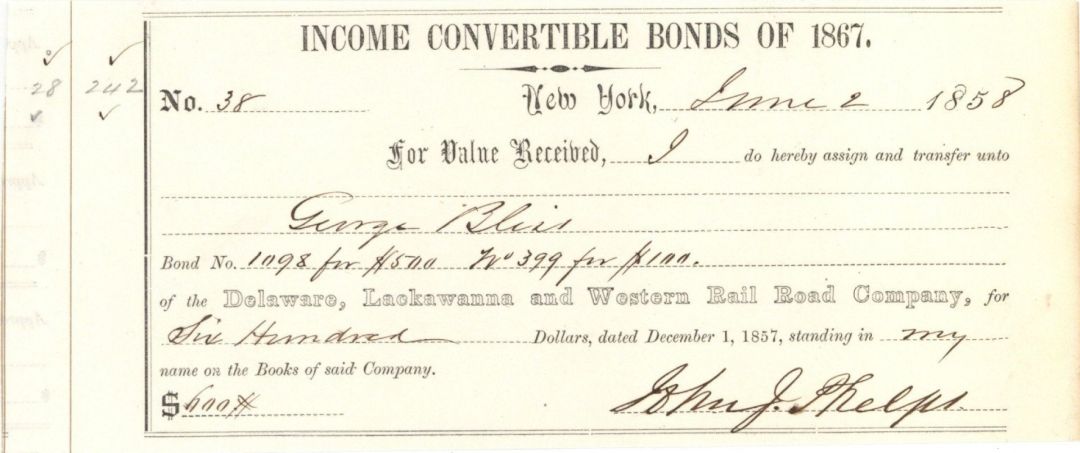 INCOME CONVERTIBLE BONDS OF 1867.
28 242
No. 38 New York, June 2 1858
For Value Received, I do hereby assign and transfer unto
George Bliss
Bond No. 1098 for $500 No 399 for $100.
of the Delaware, Lackawanna and Western Rail Road Company, for
Six Hundred Dollars, dated December 1, 1857, standing in my
name on the Books of said Company.
$600 John J. Phelps